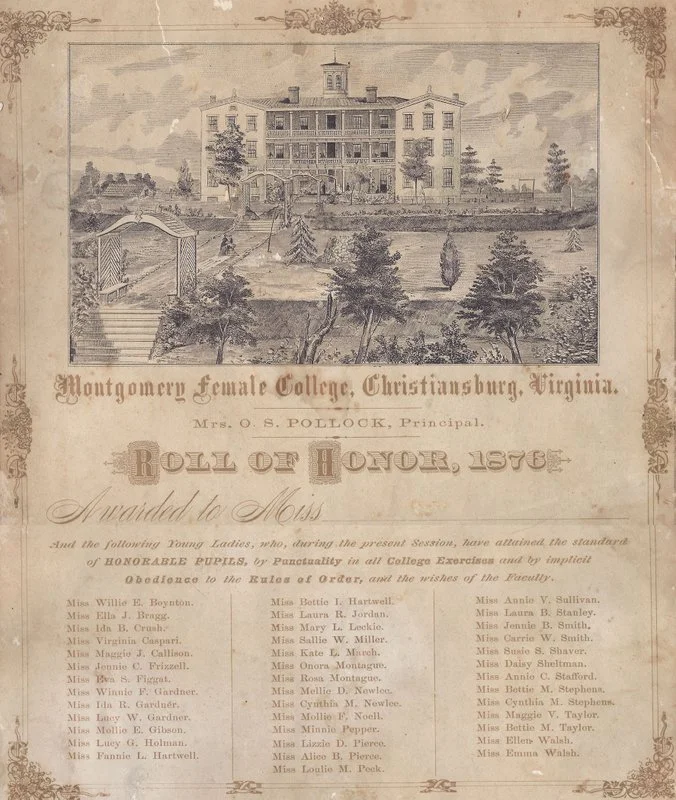 Montgomery Female College, Christiansburg, Virginia.
Mrs. O. S. POLLOCK, Principal.
ROLL OF HONOR, 1876
Awarded to Miss
And the following Young Ladies, who, during the present Session, have attained the standard
of HONORABLE PUPILS, by Punctuality in all College Exercises and by implicit
Obedience to the Rules of Order, and the wishes of the Faculty.
Miss Willie E. Boynton.
Miss Ella J. Bragg.
Miss Ida B. Crush.
Miss Virginia Caspari.
Miss Maggie J. Callison.
Miss Jennie C. Frizzell.
Miss Eva S. Figgat.
Miss Winnie F. Gardner.
Miss Ida R. Gardner.
Miss Lucy W. Gardner.
Miss Mollie E. Gibson.
Miss Lucy G. Holman.
Miss Fannie L. Hartwell.
Miss Bettie I. Hartwell.
Miss Laura R. Jordan.
Miss Mary L. Leckie.
Miss Sallie W. Miller.
Miss Kate L. March.
Miss Onora Montague.
Miss Rosa Montague.
Miss Mellie D. Newlee.
Miss Cynthia M. Newlee.
Miss Mollie F. Noell.
Miss Minnie Pepper.
Miss Lizzie D. Pierce.
Miss Alice B. Pierce.
Miss Loulie M. Peck.
Miss Annie V. Sullivan.
Miss Laura B. Stanley.
Miss Jennie B. Smith.
Miss Carrie W. Smith.
Miss Susie S. Shaver.
Miss Daisy Sheltman.
Miss Annie C. Stafford.
Miss Bettie M. Stephens.
Miss Cynthia M. Stephens.
Miss Maggie V. Taylor.
Miss Bettie M. Taylor.
Miss Ellen Walsh.
Miss Emma Walsh.